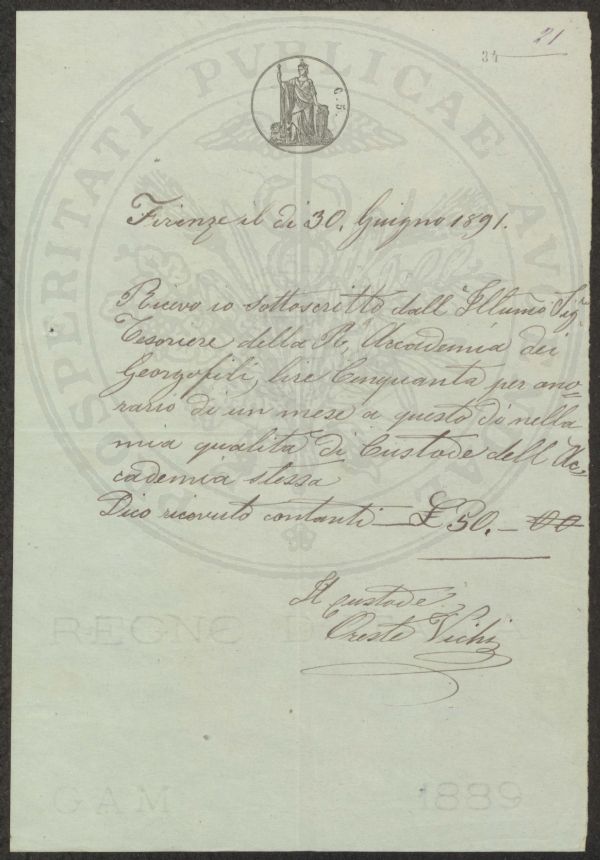 21
34
C. 5.
PROSPERITATI PVBLICAE AVGENDAE
Firenze il di 30. Guigno 1891.
Ricevo io sottoscritto dall' Illumo Sigr
Tesoriere della Ra Arcademia dei
Georgofili, lire Cinquanta per ono-
rario di un mese a questo dì nella
mia qualità di Custode dell Ac-
cademia stessa
Dico ricevuto contanti £ 50. - 00
Il custode
Oreste Vichi
REGNO D'ITALIA
GAM 1889